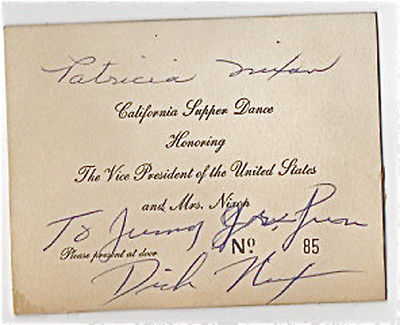 Patricia Nixon
California Supper Dance
Honoring
The Vice President of the United States
and Mrs. Nixon
To Jimmy
Nº 85
Please present at door
Dick Nixon